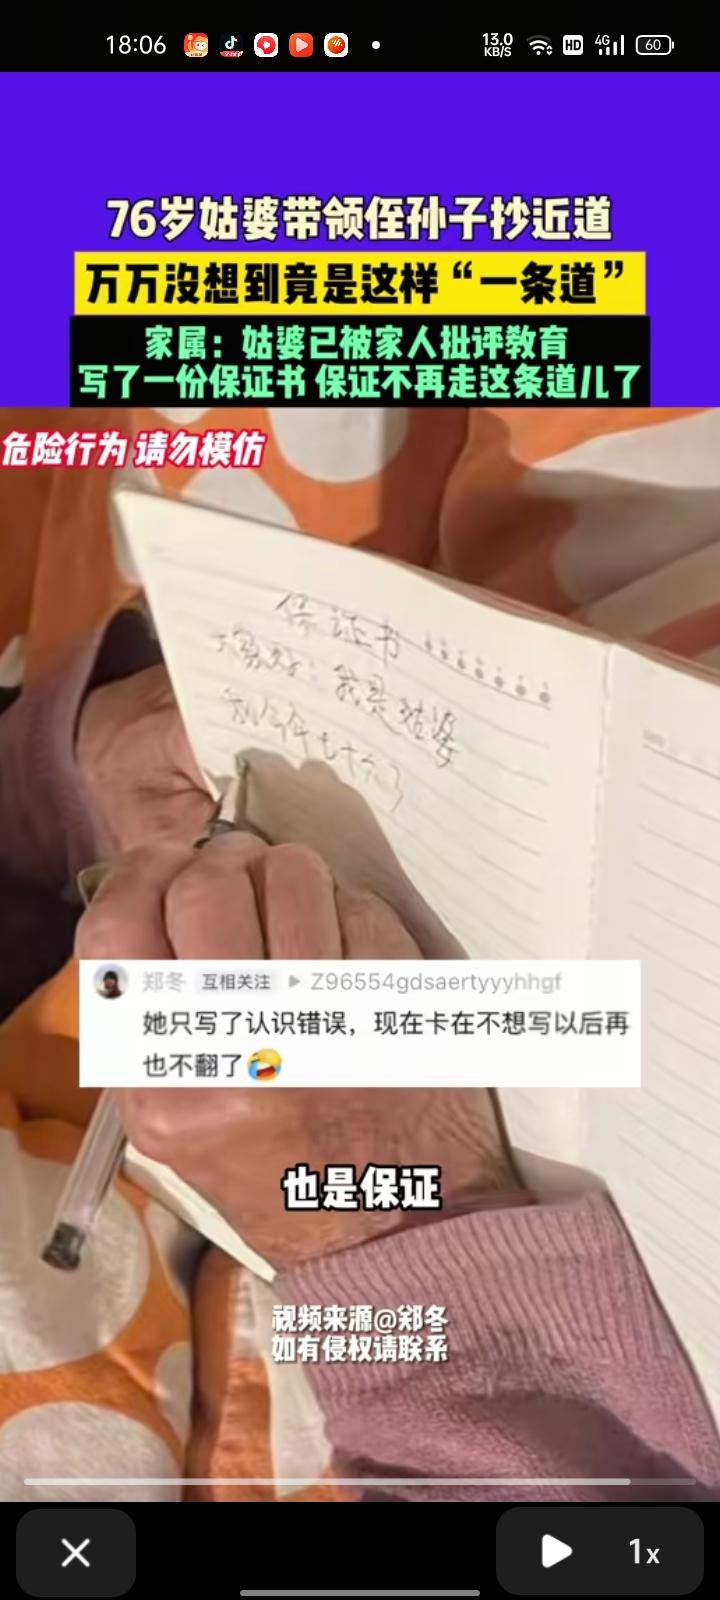 18:06
13.0
KB/S
HD
4G
60
76岁姑婆带领侄孙子抄近道
万万没想到竟是这样“一条道”
家属：姑婆已被家人批评教育
写了一份保证书 保证不再走这条道儿了
危险行为 请勿模仿
保证书
大家好：我是姑婆
我今年七十六了
郑冬 互相关注 ▶ Z96554gdsaertyyyhhgf
她只写了认识错误，现在卡在不想写以后再
也不翻了😂
也是保证
视频来源@郑冬
如有侵权请联系
1x